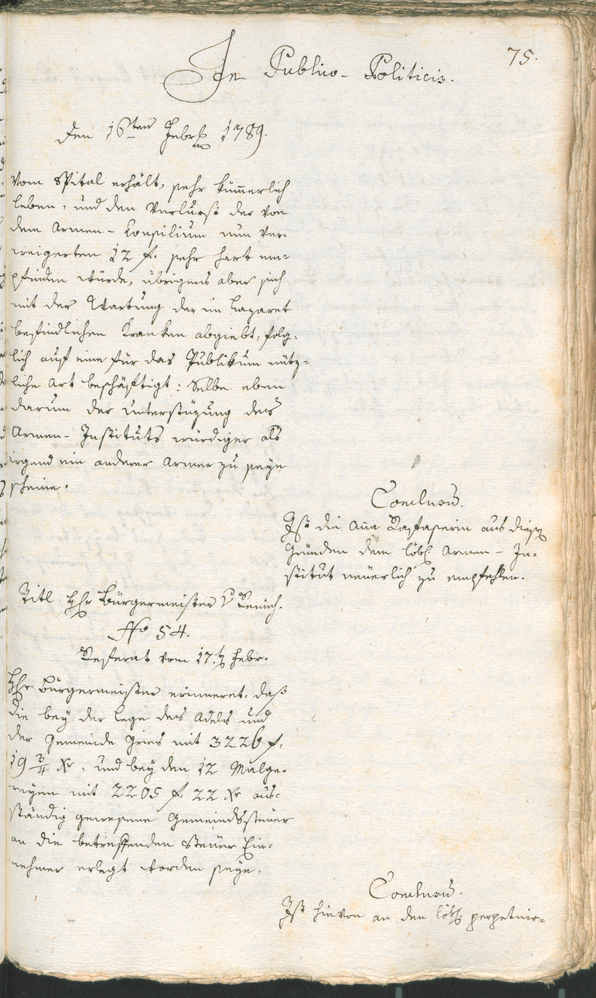 75.
In Publico-Politicis.
den 16ten Febr. 1789.
vom Spital erhält, sehr kümerlich
leben, und den Verlurst der von
dem Armen-Consilium nun ver-
weigerten 12 f. sehr hart em-
pfinden würde, übrigens aber sich
mit der Wartung der im Lazaret
befindlichen Kranken abgiebt, folg-
lich auf eine für das Publikum nütz-
liche Art beschäftigt: Selbe eben
darum der Unterstüzung des
Armen-Instituts würdiger als
irgend ein anderer Armer zu seyn
scheine.
Conclusum.
Ist die Ana aus diesen
Gründen dem löbl. Armen-In-
stitut neuerlich zu empfehlen.
Titl Hr Bürgermeister v
No 54.
Referat vom 17. Febr.
Hr Bürgermeister erinneret, daß
die bey der Lege des Adels und
der Gemeinde Gries mit 3226 f.
19 3/4 xr, und bey den 12 Malge-
reyen mit 2205 f 22 xr aus-
ständig gewesene Gemeindssteuer
an die betreffenden Steuer Ein-
nehmer erlegt worden seye.
Conclusum.
Ist hievon an den löbl. perpetuir-